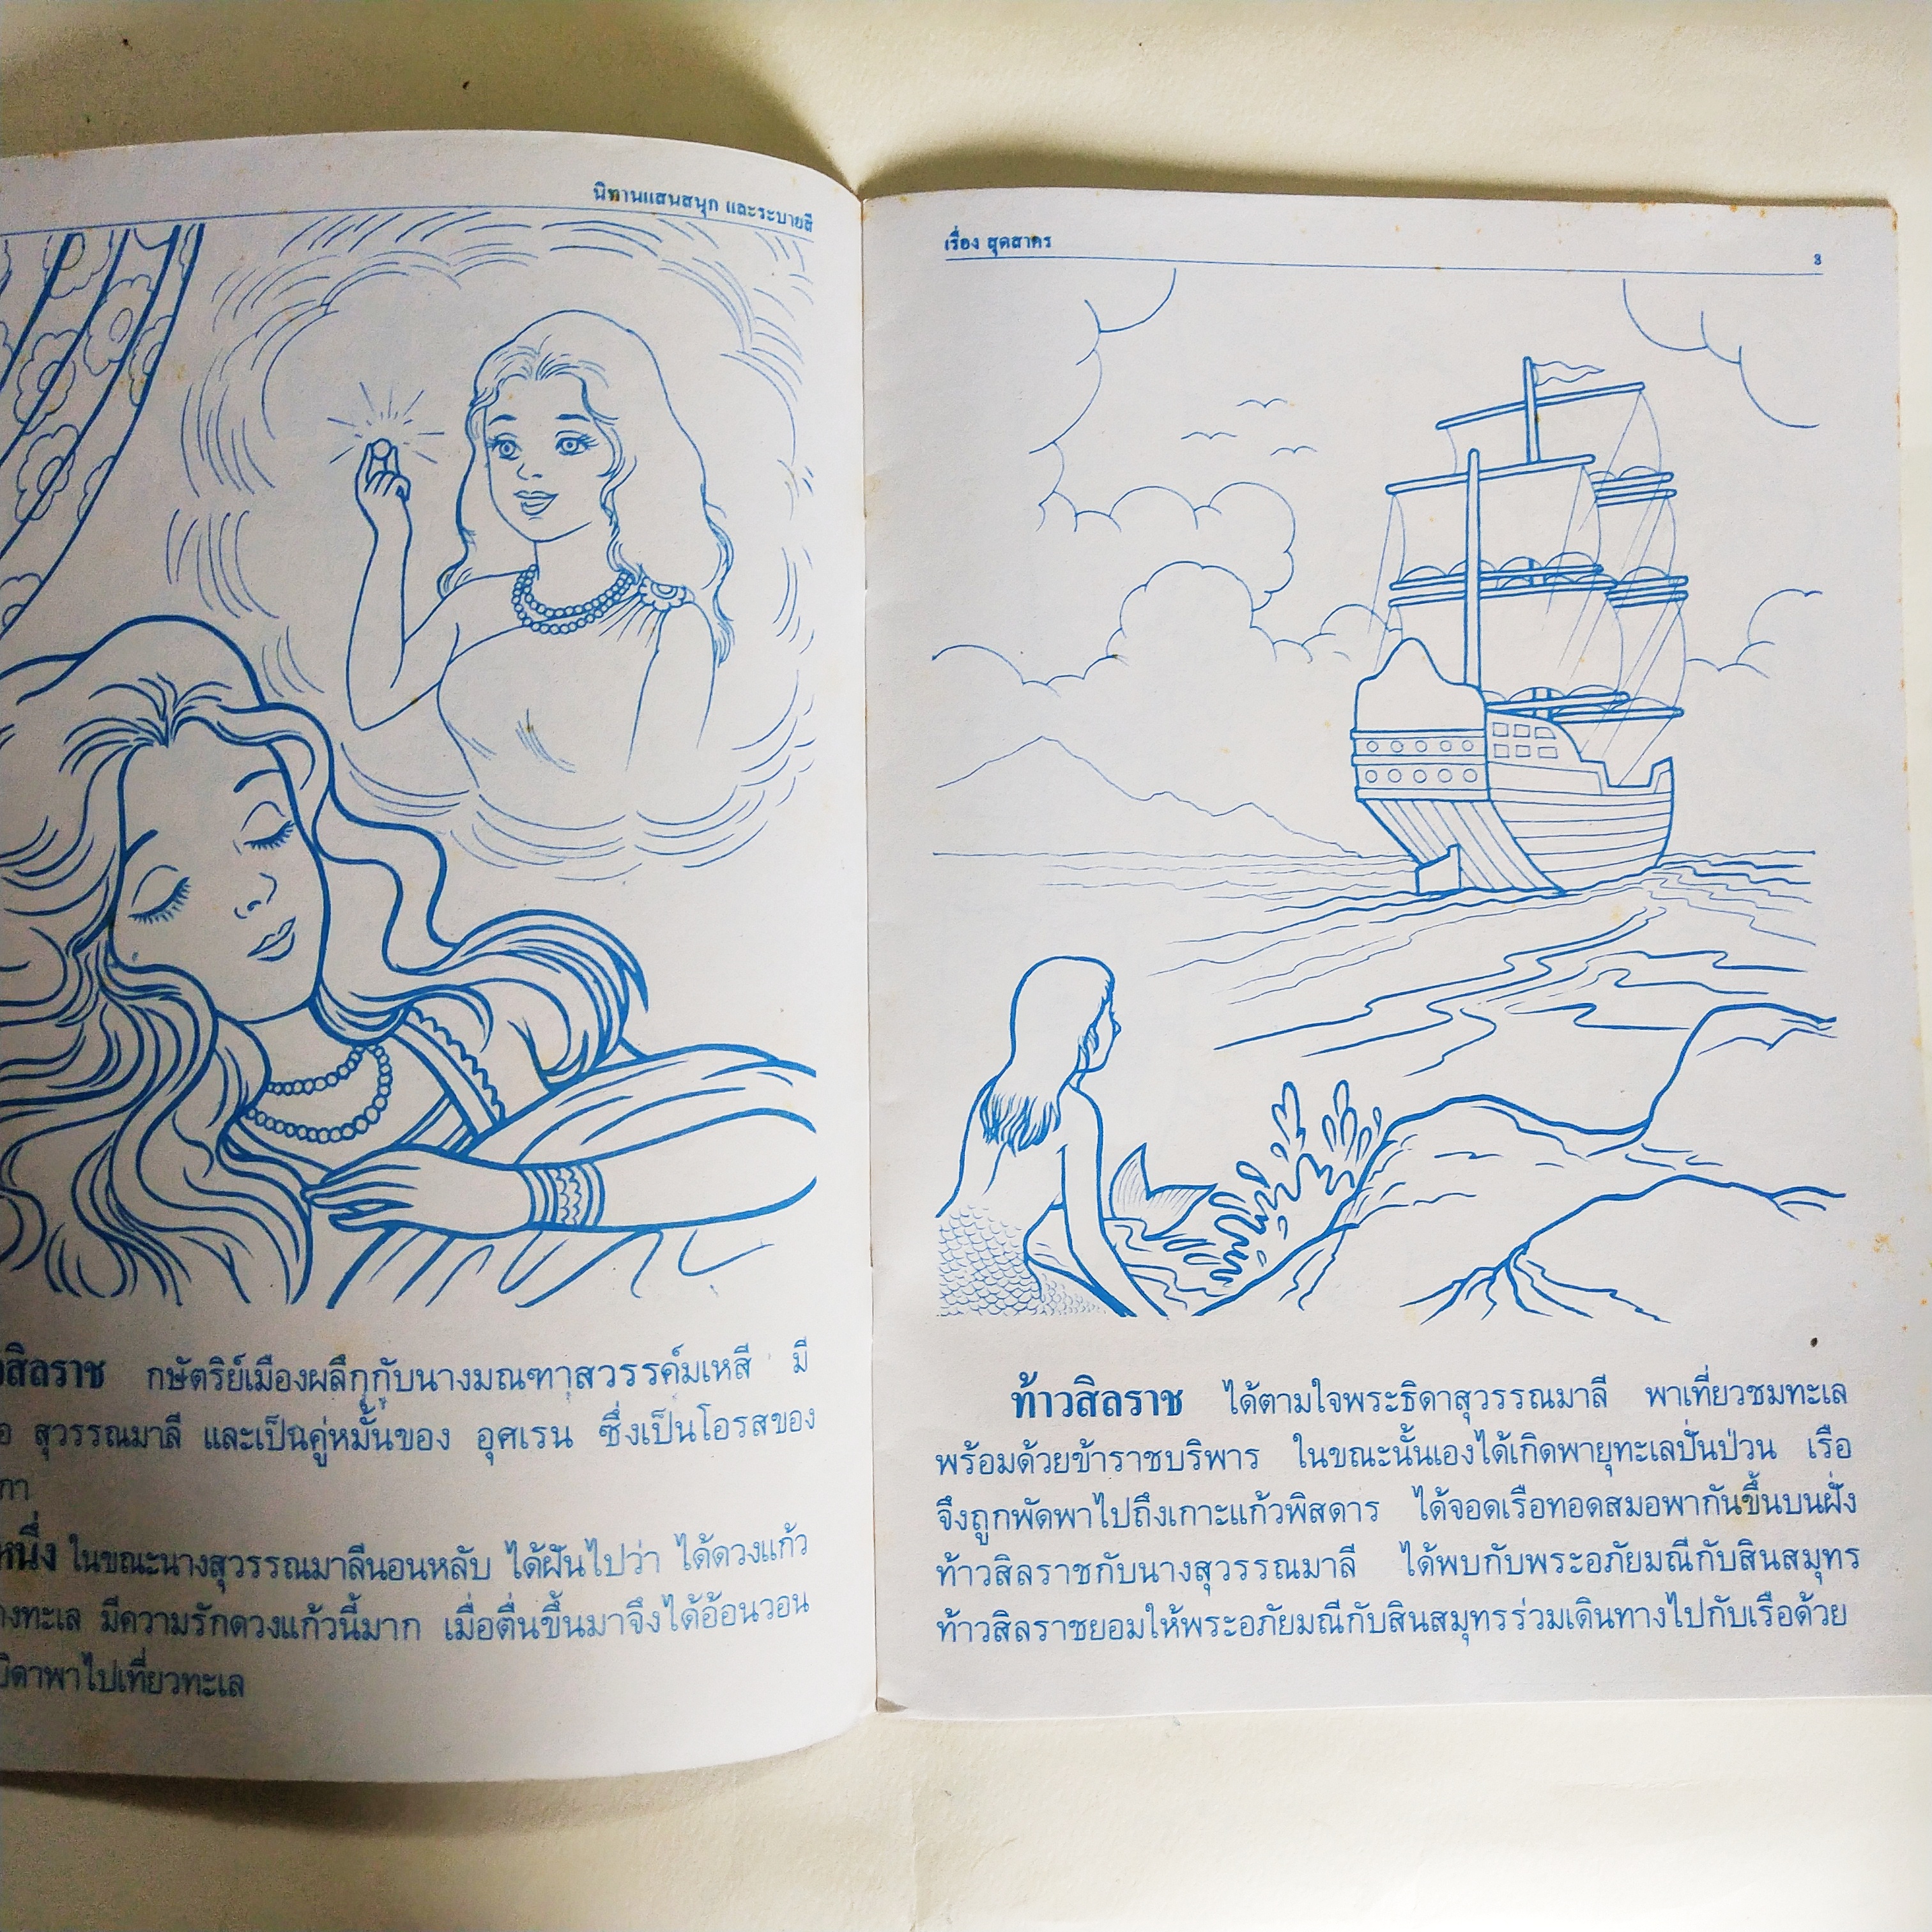 นิทานแสนสนุก และระบายสี
สิลราช กษัตริย์เมืองผลึกกับนางมณฑาสวรรค์มเหสี มี
สุวรรณมาลี และเป็นคู่หมั้นของ อุศเรน ซึ่งเป็นโอรสของ
ในขณะนางสุวรรณมาลีนอนหลับ ได้ฝันไปว่า ได้ดวงแก้ว
มีความรักดวงแก้วนี้มาก เมื่อตื่นขึ้นมาจึงได้อ้อนวอน
บิดาพาไปเที่ยวทะเล
เรื่อง สุดสาคร
3
ท้าวสิลราช ได้ตามใจพระธิดาสุวรรณมาลี พาเที่ยวชมทะเล
พร้อมด้วยข้าราชบริพาร ในขณะนั้นเองได้เกิดพายุทะเลปั่นป่วน เรือ
จึงถูกพัดพาไปถึงเกาะแก้วพิสดาร ได้จอดเรือทอดสมอพากันขึ้นบนฝั่ง
ท้าวสิลราชกับนางสุวรรณมาลี ได้พบกับพระอภัยมณีกับสินสมุทร
ท้าวสิลราชยอมให้พระอภัยมณีกับสินสมุทรร่วมเดินทางไปกับเรือด้วย